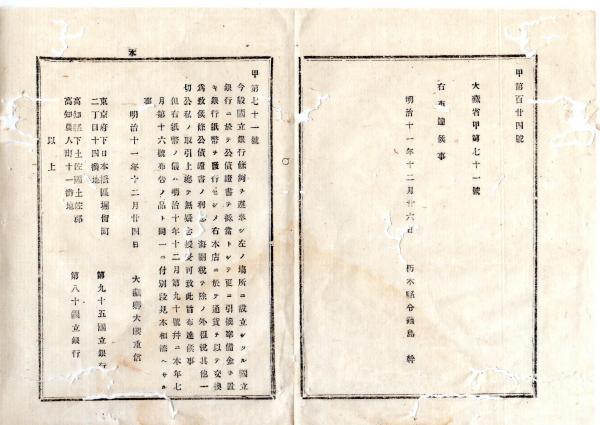 甲第百廿四號
大藏省甲第七十一號
右布達候事
明治十一年十二月廿六日
栃木縣令鍋島 幹
本
甲第七十一號
今般國立銀行條例ヲ遵奉シ左ノ場所ニ設立シタル國立
銀行ニ於テ公債證書ヲ抵當トシテ更ニ引換準備金ヲ置
キ銀行紙幣ヲ發行セシメ右本店ニ於テ通貨ヲ以テ交換
為致候條公債證書ノ利子海關税ヲ除ノ外租税其他一
切公私ノ取引上總テ無疑念授受可致此旨布達候事
但右紙幣ノ儀ハ明治十年十二月第九十號并ニ本年七
月第十六號布告ノ品ト同一ニ付別段見本相添ヘサル
事
明治十一年十二月廿四日
大藏卿大隈重信
東京府下日本橋區堀留町
二丁目十四番地
第九十五國立銀行
高知縣下土佐國土佐郡
高知農人町十一番地
第八十國立銀行
以上